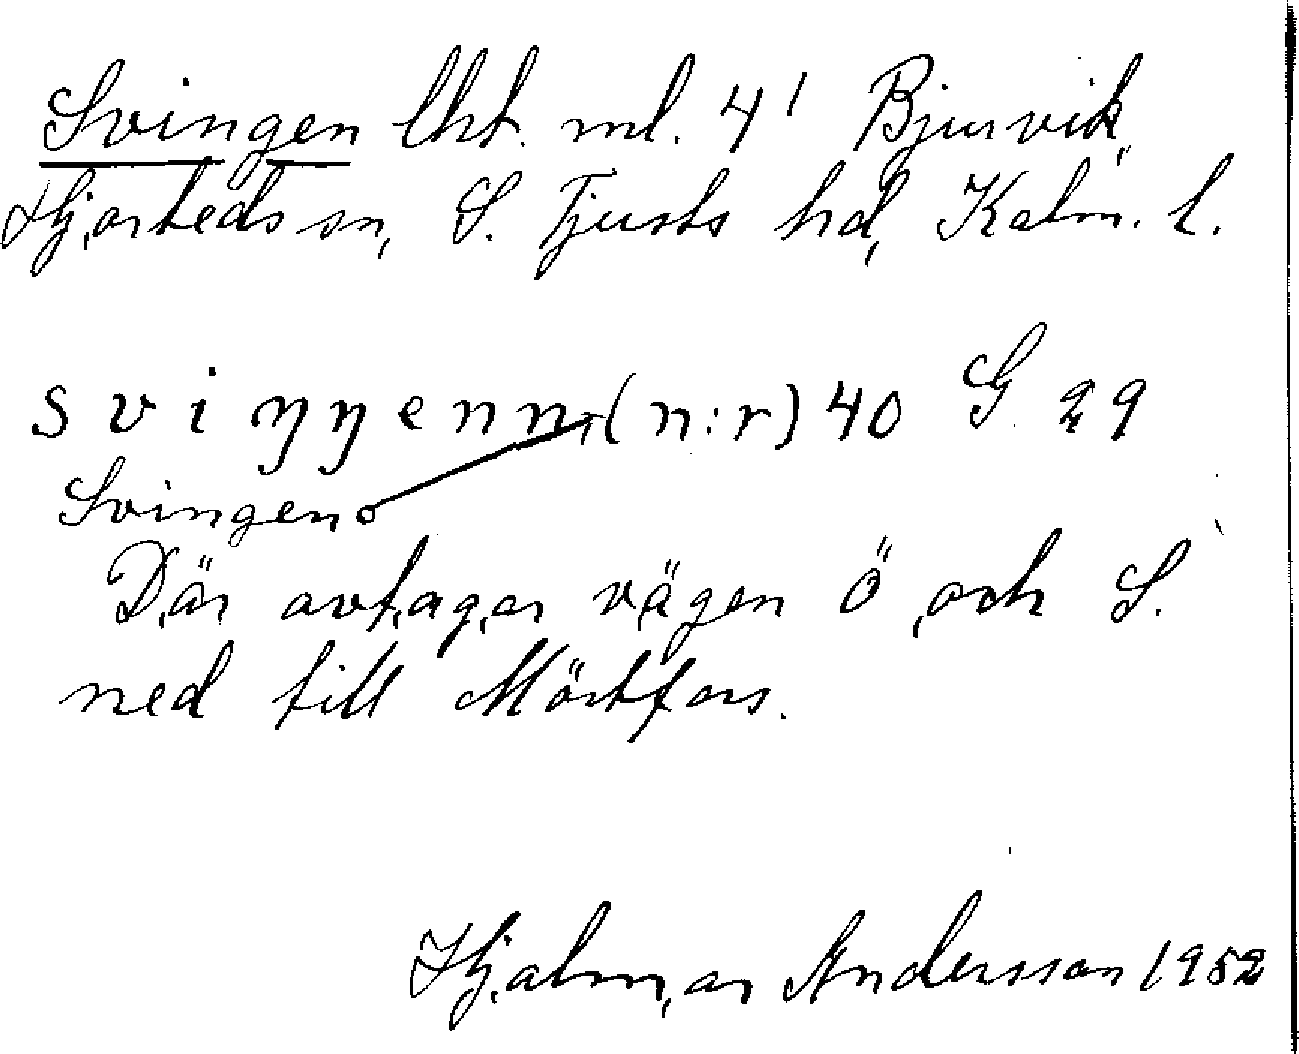 Svingen lht. ml. 4' Bjurvik,
Hjorteds sn, S. Tjusts hd, Kalm. l.
s v i ŋ ŋ e n n, (n:r) 40 G 29
Svingen
Där avtagar vägen ö och S.
ned till Mörtfors.
Hjalmar Andersson 1952